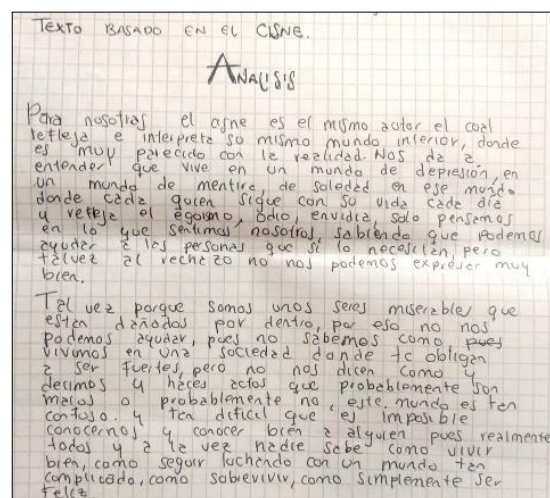 TEXTO BASADO EN EL CISNE.
ANALISIS
Para nosotras el cisne es el mismo autor el cual
refleja e interpreta so mismo mundo interior, donde
es muy parecido con la realidad. NOS da a
entender que vive en un mundo de depresión, en
un mundo de mentira, de soledad en ese mundo
donde cada quien sigue con su vida cada dia
y refleja el egoismo, odio, envidia, solo pensamos
en lo que sentimos nosotros, sabiendo que podemos
ayudar a las personas que si lo necesitan, pero
talvez al rechazo no nos podemos expresar muy
bien.
Tal vez porque somos unos seres miserables que
estan dañados por dentro, por eso no nos
podemos ayudar, pues no sabemos como pues
vivimos en una sociedad donde te obligan
a ser fuertes, pero no nos dicen como y
decimos y haces actos que probablemente son
malos o probablemente no, este mundo es tan
confuso. y tan dificil que es imposible
conocernos y conocer bien a alguien pues realmente
todos y a la vez nadie sabe como vivir
bien, como seguir luchando con un mundo tan
complicado, como sobrevivir, como simplemente ser
feliz